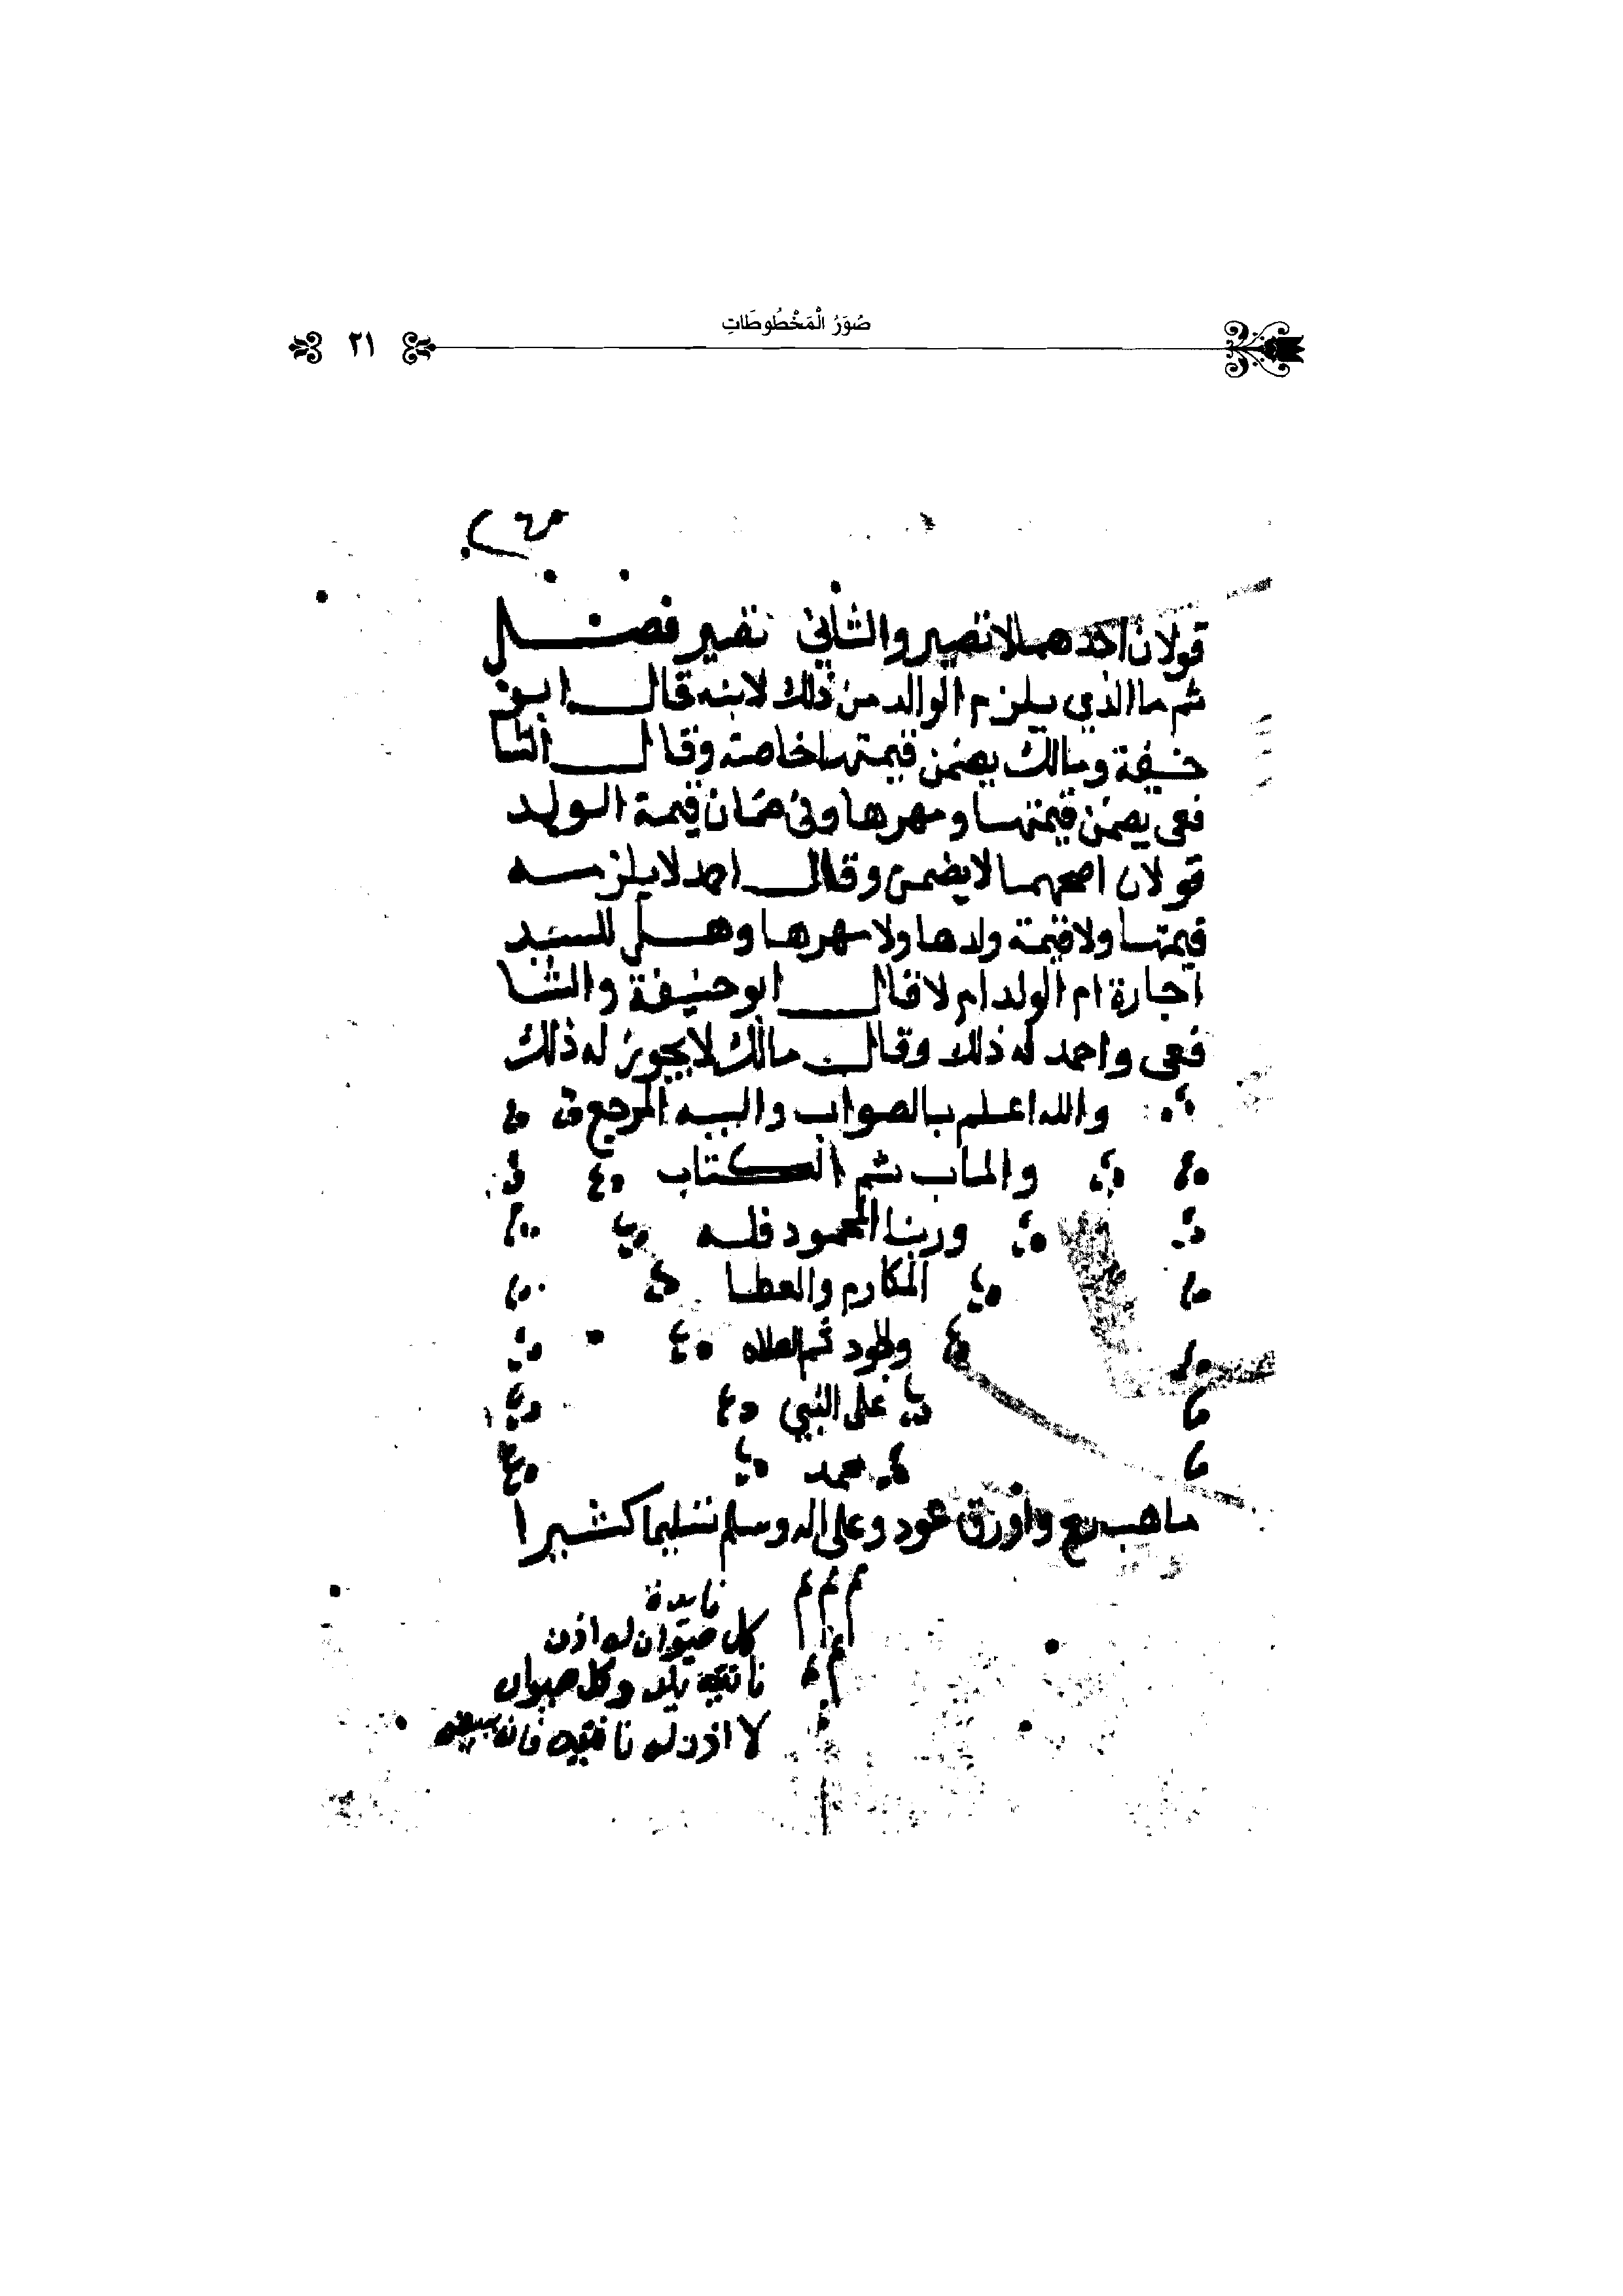 صُوَرُ الْمَخْطُوطَاتِ
٢١
قولان احدهما لا تصير والثاني تصير فصل
ثم ما الذي يلزم الوالد من ذلك لابنه قال ابو
حنيفة ومالك يضمن قيمتها خاصة وقال الشا
فعي يضمن قيمتها ومهرها وفي ضمان قيمة الولد
قولان اصحهما لا يضمن وقال احمد لا يلزمه
قيمتها ولا قيمة ولدها ولا مهرها وهل للسيد
اجارة ام الولد ام لا قال ابو حنيفة والشا
فعي واحمد له ذلك وقال مالك لا يجوز له ذلك
والله اعلم بالصواب واليه المرجع
والماب تم الكتاب
وربنا المحمود فله
المكارم والعطا
والجود ثم الصلاه
على النبي
محمد
ما هب ريح واورق عود وعلى اله وسلم تسليما كثيرا
فايدة
كل حيوان له اذن
ناتئة يلد وكل حيوان
لا اذن له ناتئة فانه يبيض